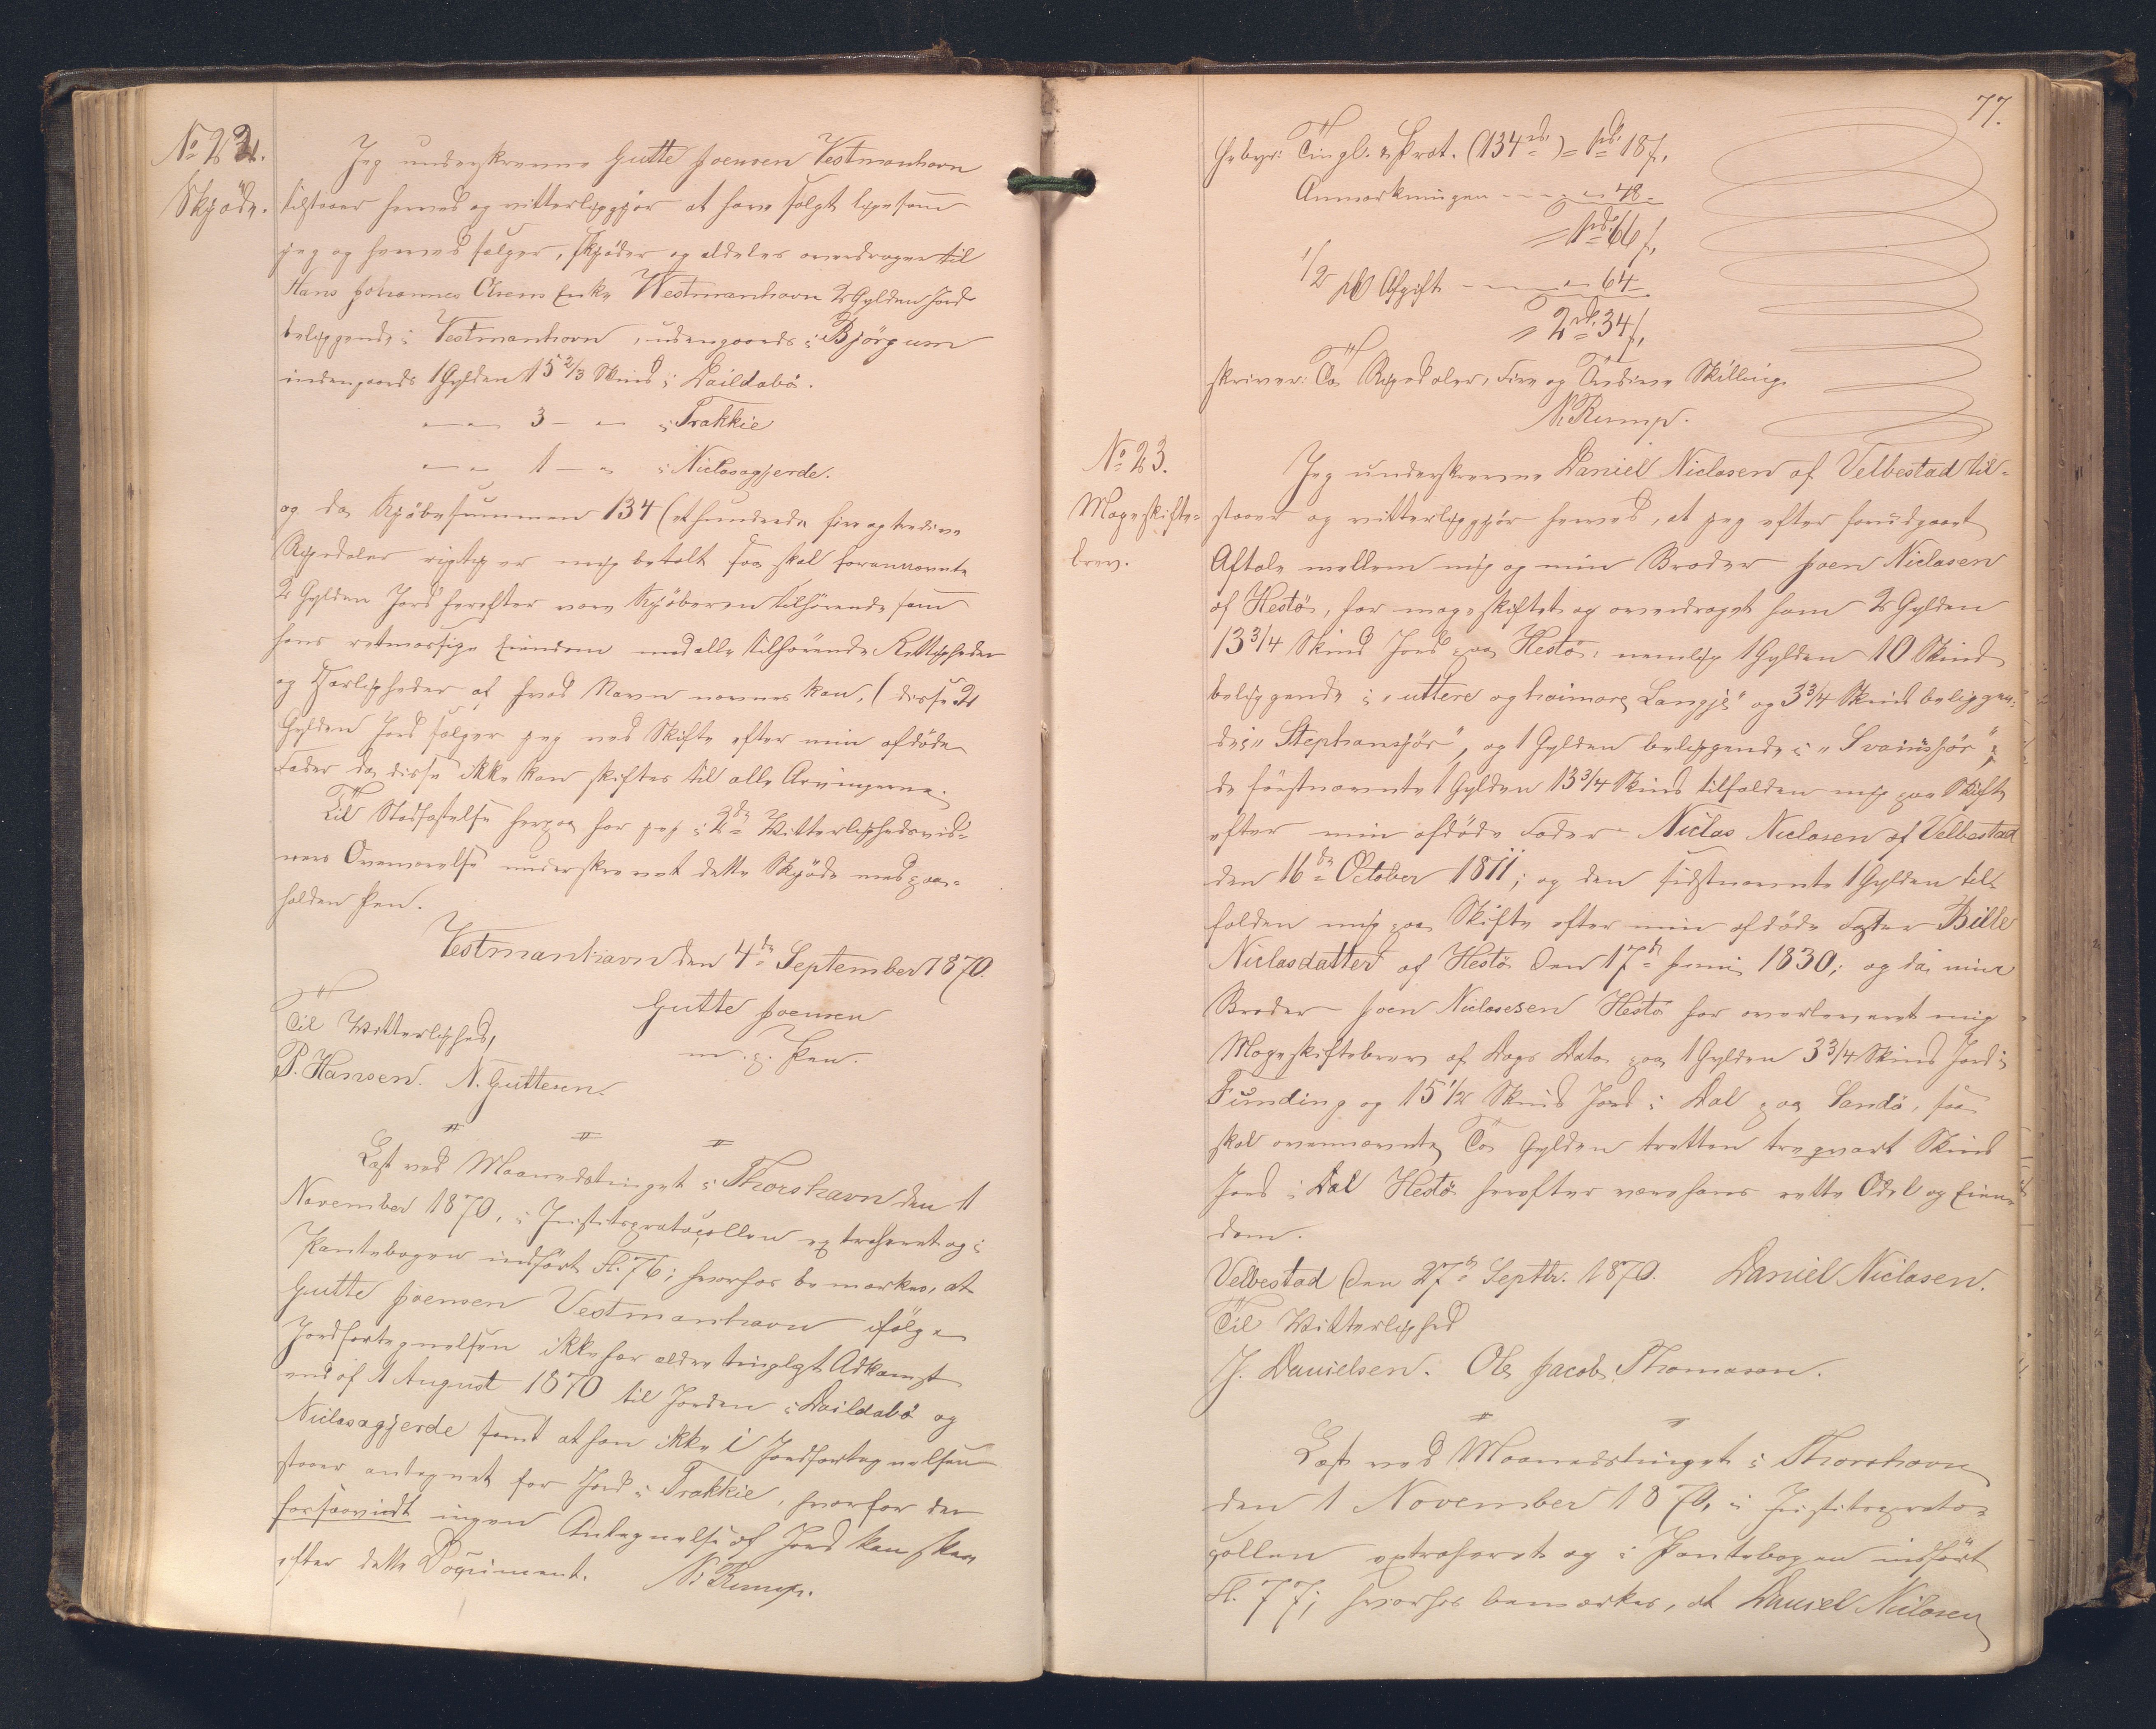 No 22.
Skjøde.
Jeg underskrevne Gutte Joensen Vestmanhavn
tilstaaer herved og vitterliggjør at have solgt ligesom
jeg og herved sælger, skjøder og aldeles overdrager til
Hans Johannes Olsens Enke Westmanhavn 2 Gylden Jord
beliggende i Vestmanhavn, udengaards i Bjørgum
indengaards 1 Gylden 15 2/3 Skind i Daildabø.
" — " 3 — " i Trakkie
" — " 1 — " i Niclasagjerde.
og da Kjøbesummen 134 (et hundrede fire og tredive
Rigsdaler rigtig er mig betalt saa skal forannævnte
2 Gylden Jord herefter være Kjøberen tilhørende som
hans retmæssige Eiendom med alle tilhørende Rettigheder
og Herligheder af hvad Navn nævnes kan. (disse 2
Gylden Jord sælger jeg ved Skifte efter min afdøde
Fader da disse ikke kan skiftes til alle Arvingerne.
Til Stadfæstelse herpaa har jeg i 2de Vitterlighedsvid-
ners Overværelse underskrevet dette Skjøde med paa-
holden Pen.
Vestmanhavn den 4de September 1870.
Gutte Joensen
m. p. Pen.
Til Vitterlighed,
P. Hansen. N. Guttesen.
Læst ved Maanedstinget i Thorshavn den 1
November 1870, i Justitsprotocollen extraheret og i
Pantebogen indført Fl. 76; hvorhos bemærkes, at
Gutte Joensen Vestmanhavn ifølge
Jordfortegnelsen ikke har ældre tinglyst Adkomst
end af 1 August 1870 til Jorden i Daildabø og
Niclasagjerde samt at han ikke i Jordfortegnelsen
staaer antegnet for Jord i Trakkie, hvorfor der
forsaavidt ingen Antegnelse af Jord kan skee
efter dette Document. N. Rump.
77.
Gebyr: Tingl. & Prot. (134 rd.) = 1 rd. 18 f,
Anmærkningen - - - " 48 -
= 1 rd. 66 f,
1/2 pCt Afgift - - " 64 -
= 2 rd. 34 f,
skriver: To Rigsdaler, Fire og Tredive Skilling.
N. Rump.
No 23.
Mageskifte-
brev.
Jeg underskrevne Daniel Niclasen af Velbestad til-
staaer og vitterliggjør herved, at jeg efter forudgaaet
Aftale mellem mig og min Broder Joen Niclasen
af Hestø, har mageskiftet og overdraget ham 2 Gylden
13 3/4 Skind Jord paa Hestø, nemlig 1 Gylden 10 Skind
beliggende i "uttere og haimare Langgje" og 3 3/4 Skind beliggen-
de i "Stephansjør", og 1 Gylden beliggende i "Svainsjør";
de førstnævnte 1 Gylden 13 3/4 Skind tilfalden mig paa Skifte
efter min afdøde Fader Niclas Niclasen af Velbestad
den 16de October 1811; og den sidstnævnte 1 Gylden til-
falden mig paa Skifte efter min afdøde Faster Bille
Niclasdatter af Hestø den 17de Juni 1830; og da min
Broder Joen Niclasesen Hestø har overleveret mig
Mageskiftebrev af Dags Dato paa 1 Gylden 3 3/4 Skind Jord i
Funding og 15 1/2 Skind Jord i Dal paa Sandø, saa
skal ovennævnte To Gylden tretten trequart Skind
Jord i Dal Hestø herefter være hans rette Odel og Eien-
dom.
Velbestad den 27de Septbr. 1870. Daniel Niclasen.
Til Vitterlighed
J. Danielsen. Ole Jacob Thomasen.
Læst ved Maanedstinget i Thorshavn
den 1 November 1870, i Justitsproto-
collen extraheret og i Pantebogen indført
Fl. 77; hvorhos bemærkes, at Daniel Niclasen